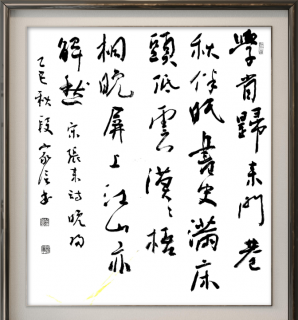 學省歸來門巷
秋伴眠書史滿床
頭低雲漠々梧
桐晚屏上江山亦
解愁 宋張耒詩晚歸
乙巳秋段家信书